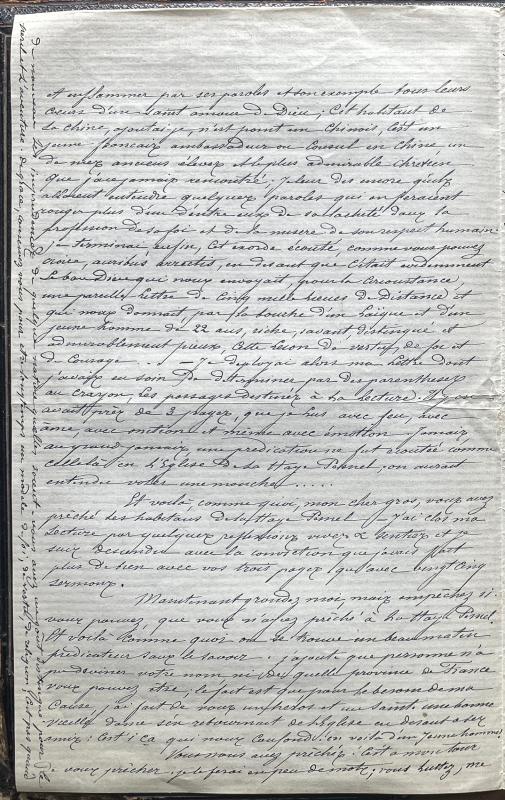 et enflammer par ses paroles et son exemple tous leurs
cœurs d'un saint amour de Dieu; Cet habitant de
la chine, ajoutai-je, n'est point un Chinois, c'est un
jeune français ambassadeur ou Consul en Chine, un
de mes anciens élèves et le plus admirable chrétien
que j'aie jamais rencontré; Je leur dis encore qu'ils
allaient entendre quelques paroles qui en feraient
rougir plus d'un d'entre eux de sa lacheté dans la
profession de sa foi et de la misère de son respect humain.
Je terminai enfin, Cet exorde écouté, comme vous pouvez
croire, auribus arrectis, en disant que C'était évidemment
le bon Dieu qui nous envoyait, pour la Circonstance,
une pareille Lettre de Cinq mille lieues de Distance et
qui nous donnait par la bouche d'un Laïque et d'un
jeune homme de 22 ans, riche, savant distingué et
admirablement pieux, Cette Leçon de vertu, de foi et
de Courage — Je déployai alors ma Lettre dont
j'avais eu soin De déterminer par des parenthèses
au crayon, Les passages destinés à La Lecture. Il y en
avait près de 3 pages, que je lus avec feu, avec
âme, avec onction et même avec émotion. Jamais,
au grand jamais, une prédication ne fut écoutée comme
celle là en L'Eglise De La Haye Pesnel, on aurait
entendu voler une mouche.....
Et voilà, comme quoi, mon cher gros, vous avez
prêché les habitans de la Haye Pesnel! — J'ai clos ma
Lecture par quelques réflexions vives & senties et je
suis descendu avec la conviction que j'avais fait
plus de bien avec vos trois pages qu'avec vingt cinq
sermons.
Maintenant grondez moi, mais empêchez si
vous pouvez, que vous n'ayez prêché à la Haye Pesnel.
Et voilà Comme quoi on se trouve un beau matin
prédicateur sans le savoir J'ajoute que personne n'a
pu deviner votre nom ni De quelle province de France
vous pouvez être; le fait est que pour le besoin de ma
Cause, j'ai fait de vous un héros et un saint; une bonne
vieille dame s'en retournant de L'église en disant à ses
amies: C'est ça qui nous Confond! en voilà d'un jeune homme!
Vous nous avez prêchés: C'est à mon tour
de vous prêcher, je le ferai en peu de mots; vous luttez, me